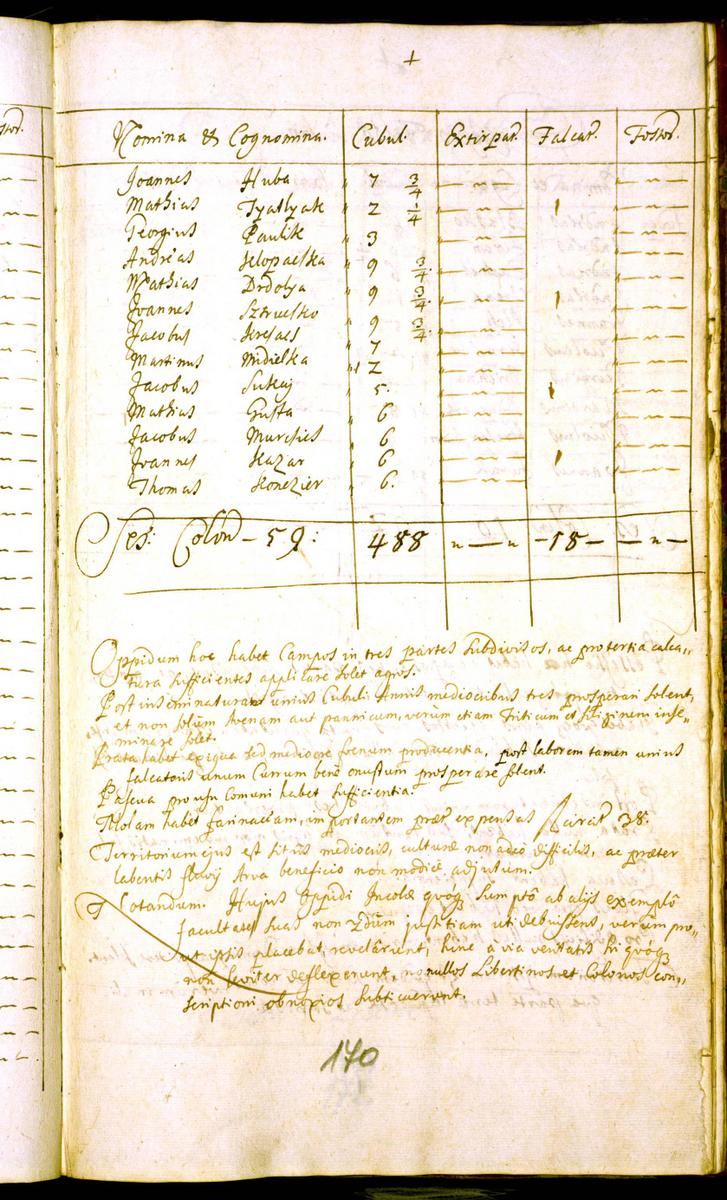 +
Nomina & Cognomina. Cubul. Extirpar. Falcar. Fossor.
Joannes Huba " 7 3/4 " — " — " — " —
Mathias Tyatlyak " 2 1/4 " — " — 1 " — " —
Georgius Paulik " 3 " — " — " — " —
Andreas Klopacska " 9 3/4 " — " — " — " —
Mathias Drdolya " 9 3/4 " — " — 1 " — " —
Joannes " 9 3/4 " — " — " — " —
Jacobus " 7 " — " — " — " —
Martinus Nidielka " 2 " — " — " — " —
Jacobus " 5 " — " — 1 " — " —
Mathias Gusta " 6 " — " — " — " —
Jacobus " 6 " — " — " — " —
Joannes Kazar " 6 " — " — 1 " — " —
Thomas " 6. " — " — " — " —
Ses: Colon – 59: 488 " — " – 18 – — " —
Oppidum hoc habet Campos in tres partes subdivisos, ac pro tertia calca„
tura sufficientes applicare solet agros.
Post inseminaturam unius Cubuli Annis mediocribus tres prosperari solent,
et non solum Avenam aut pannicum, verum etiam Triticum et siliginem inse„
minare solet.
Prata habet exigua sed mediocre foenum producentia, post laborem tamen unius
falcatoris unum Currum bene onustum prosperare solent.
Pascua pro usu Comuni habet sufficientia.
Molam habet farinaceam, importantem præter expensas circit 38.
Territorium ejus est situs mediocris, culturæ non adeo difficilis, ac præter
labentis fluvij Arva beneficio non modice adjutum.
Notandum. Hujus Oppidi Incolæ quoq sumptô ab alijs exemplô
facultates suas non justitiam uti debuissent, verum pro„
ut ipsis placebat, revelârunt, hinc a via veritatis hi quóq
non leviter deflexerunt, nonullos Libertinos et Colonos con„
scriptioni obnoxios subticuerunt.
170